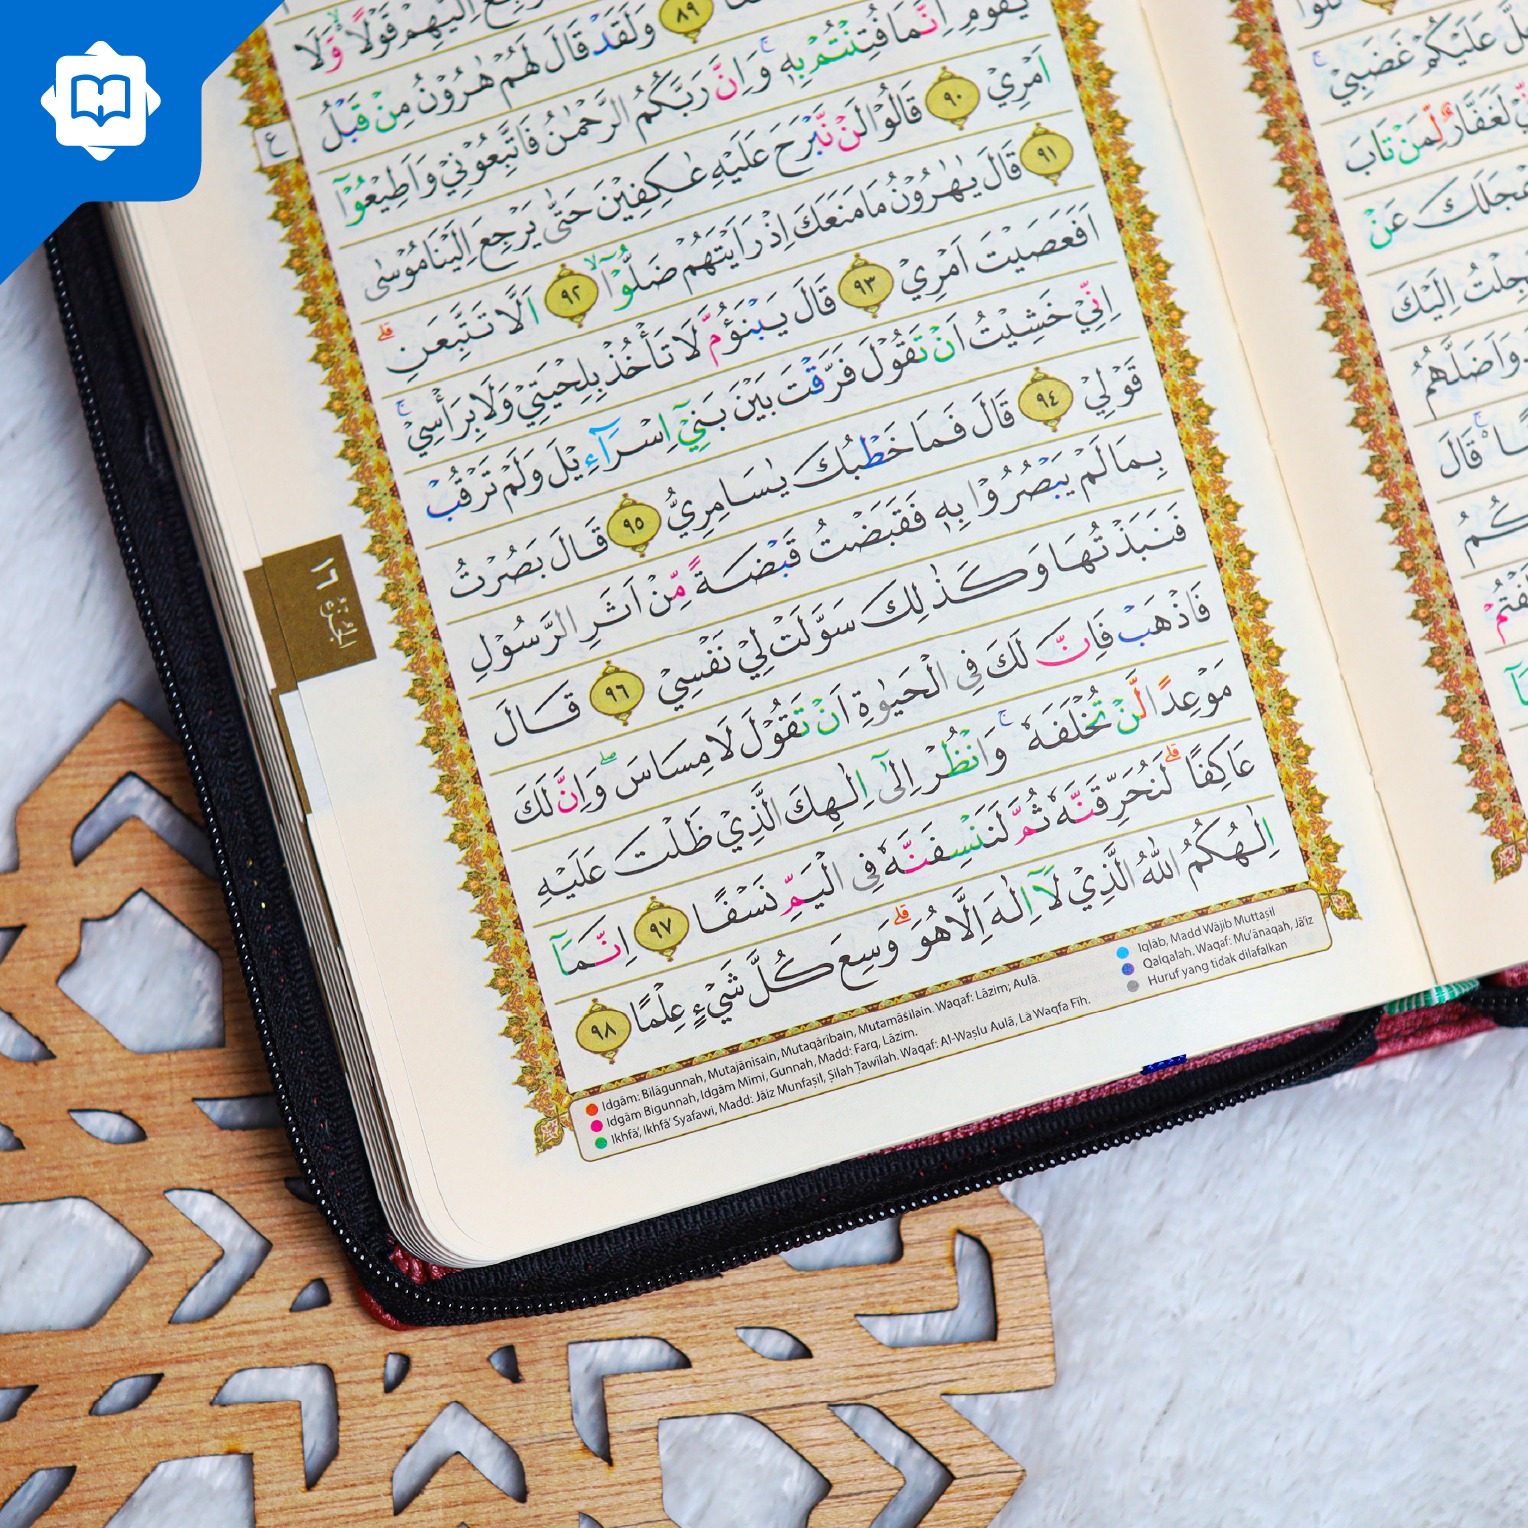 عَلَيْكُمْ غَضَبِيْۚ
لَغَفَّارٌ لِّمَنْ تَابَ
عَنْ
اِلَيْكَ
وَاَضَلَّهُمُ
قَالَ
اِلَيْهِمْ قَوْلًا ەۙ وَّلَا
٨٩ وَلَقَدْ قَالَ لَهُمْ هٰرُوْنُ مِنْ قَبْلُ
يٰقَوْمِ اِنَّمَا فُتِنْتُمْ بِهٖۚ وَاِنَّ رَبَّكُمُ الرَّحْمٰنُ فَاتَّبِعُوْنِيْ وَاَطِيْعُوْٓا
اَمْرِيْ ٩٠ قَالُوْا لَنْ نَّبْرَحَ عَلَيْهِ عٰكِفِيْنَ حَتّٰى يَرْجِعَ اِلَيْنَا مُوْسٰى
٩١ قَالَ يٰهٰرُوْنُ مَا مَنَعَكَ اِذْ رَاَيْتَهُمْ ضَلُّوْٓاۙ ٩٢ اَلَّا تَتَّبِعَنِۗ
اَفَعَصَيْتَ اَمْرِيْ ٩٣ قَالَ يَبْنَؤُمَّ لَا تَأْخُذْ بِلِحْيَتِيْ وَلَا بِرَأْسِيْۚ
اِنِّيْ خَشِيْتُ اَنْ تَقُوْلَ فَرَّقْتَ بَيْنَ بَنِيْٓ اِسْرَاۤءِيْلَ وَلَمْ تَرْقُبْ
قَوْلِيْ ٩٤ قَالَ فَمَا خَطْبُكَ يٰسَامِرِيُّ ٩٥ قَالَ بَصُرْتُ
بِمَا لَمْ يَبْصُرُوْا بِهٖ فَقَبَضْتُ قَبْضَةً مِّنْ اَثَرِ الرَّسُوْلِ
فَنَبَذْتُهَا وَكَذٰلِكَ سَوَّلَتْ لِيْ نَفْسِيْ ٩٦ قَالَ
فَاذْهَبْ فَاِنَّ لَكَ فِى الْحَيٰوةِ اَنْ تَقُوْلَ لَا مِسَاسَۖ وَاِنَّ لَكَ
مَوْعِدًا لَّنْ تُخْلَفَهٗۚ وَانْظُرْ اِلٰٓى اِلٰهِكَ الَّذِيْ ظَلْتَ عَلَيْهِ
عَاكِفًاۗ لَنُحَرِّقَنَّهٗ ثُمَّ لَنَنْسِفَنَّهٗ فِى الْيَمِّ نَسْفًا ٩٧ اِنَّمَآ
اِلٰهُكُمُ اللّٰهُ الَّذِيْ لَآ اِلٰهَ اِلَّا هُوَۗ وَسِعَ كُلَّ شَيْءٍ عِلْمًا ٩٨
ع
الجزء ١٦
Idgām: Bilāgunnah, Mutajānisain, Mutaqāribain, Mutamāṡilain. Waqaf: Lāzim; Aulā.
Idgām Bigunnah, Idgām Mimī, Gunnah, Madd: Farq, Lāzim.
Ikhfā', Ikhfā' Syafawi, Madd: Jāiz Munfaṣil, Ṣilah Ṭawīlah. Waqaf: Al-Waṣlu Aulā, Lā Waqfa Fīh.
Iqlāb, Madd Wājib Muttaṣil
Qalqalah, Waqaf: Mu'ānaqah, Jā'iz
Huruf yang tidak dilafalkan